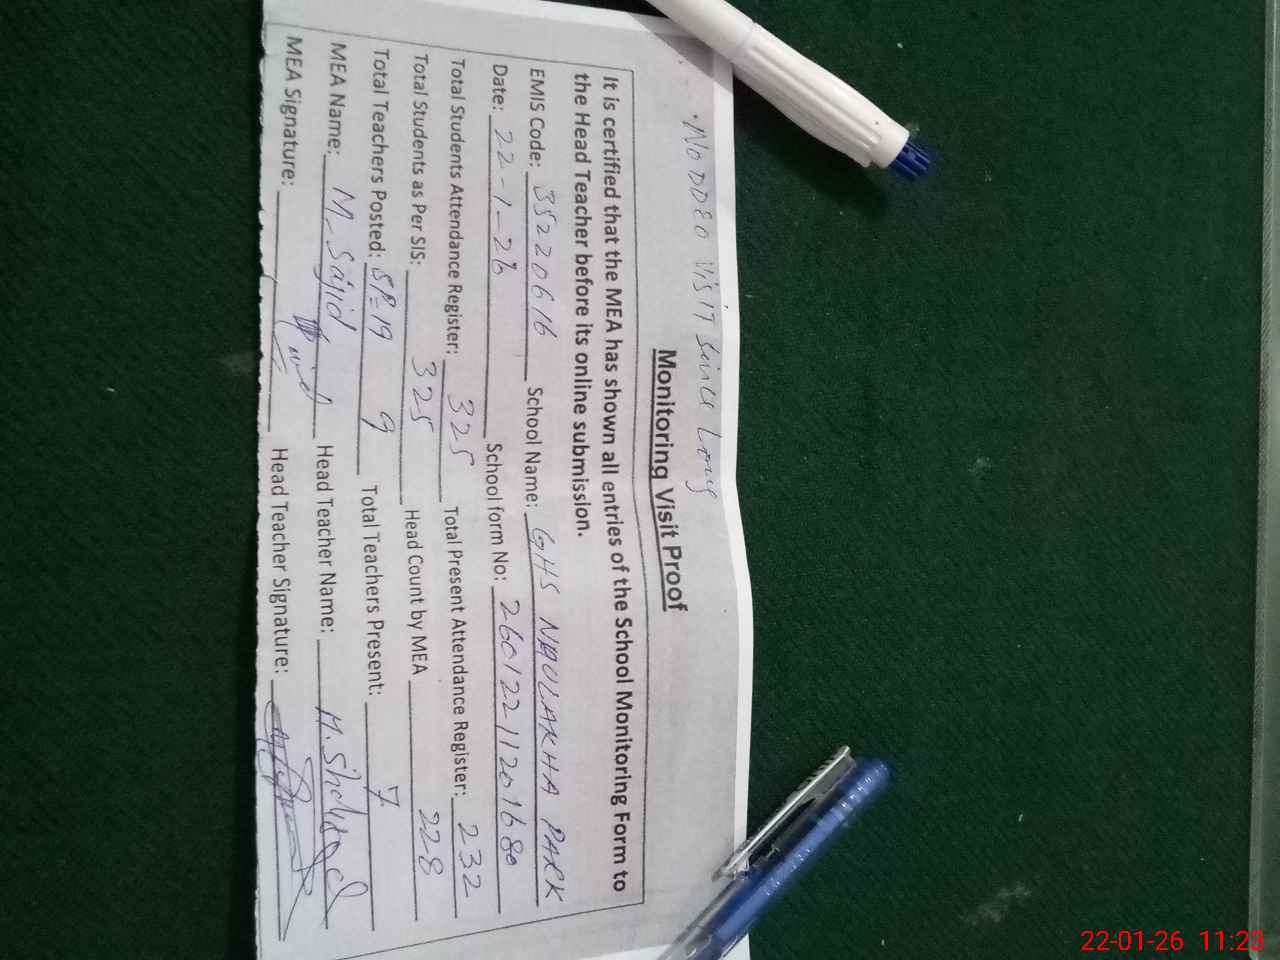 . No DDEO visit since long
Monitoring Visit Proof
It is certified that the MEA has shown all entries of the School Monitoring Form to
the Head Teacher before its online submission.
EMIS Code: 35220616 School Name: GHS NAULAKHA PARK
Date: 22-1-26 School form No: 26012211201680
Total Students Attendance Register: 325 Total Present Attendance Register: 232
Total Students as Per SIS: 325 Head Count by MEA 228
Total Teachers Posted: 9 Total Teachers Present: 7
MEA Name: M. Sajid Head Teacher Name: M. Shahzad
MEA Signature: Head Teacher Signature:
22-01-26 11:23